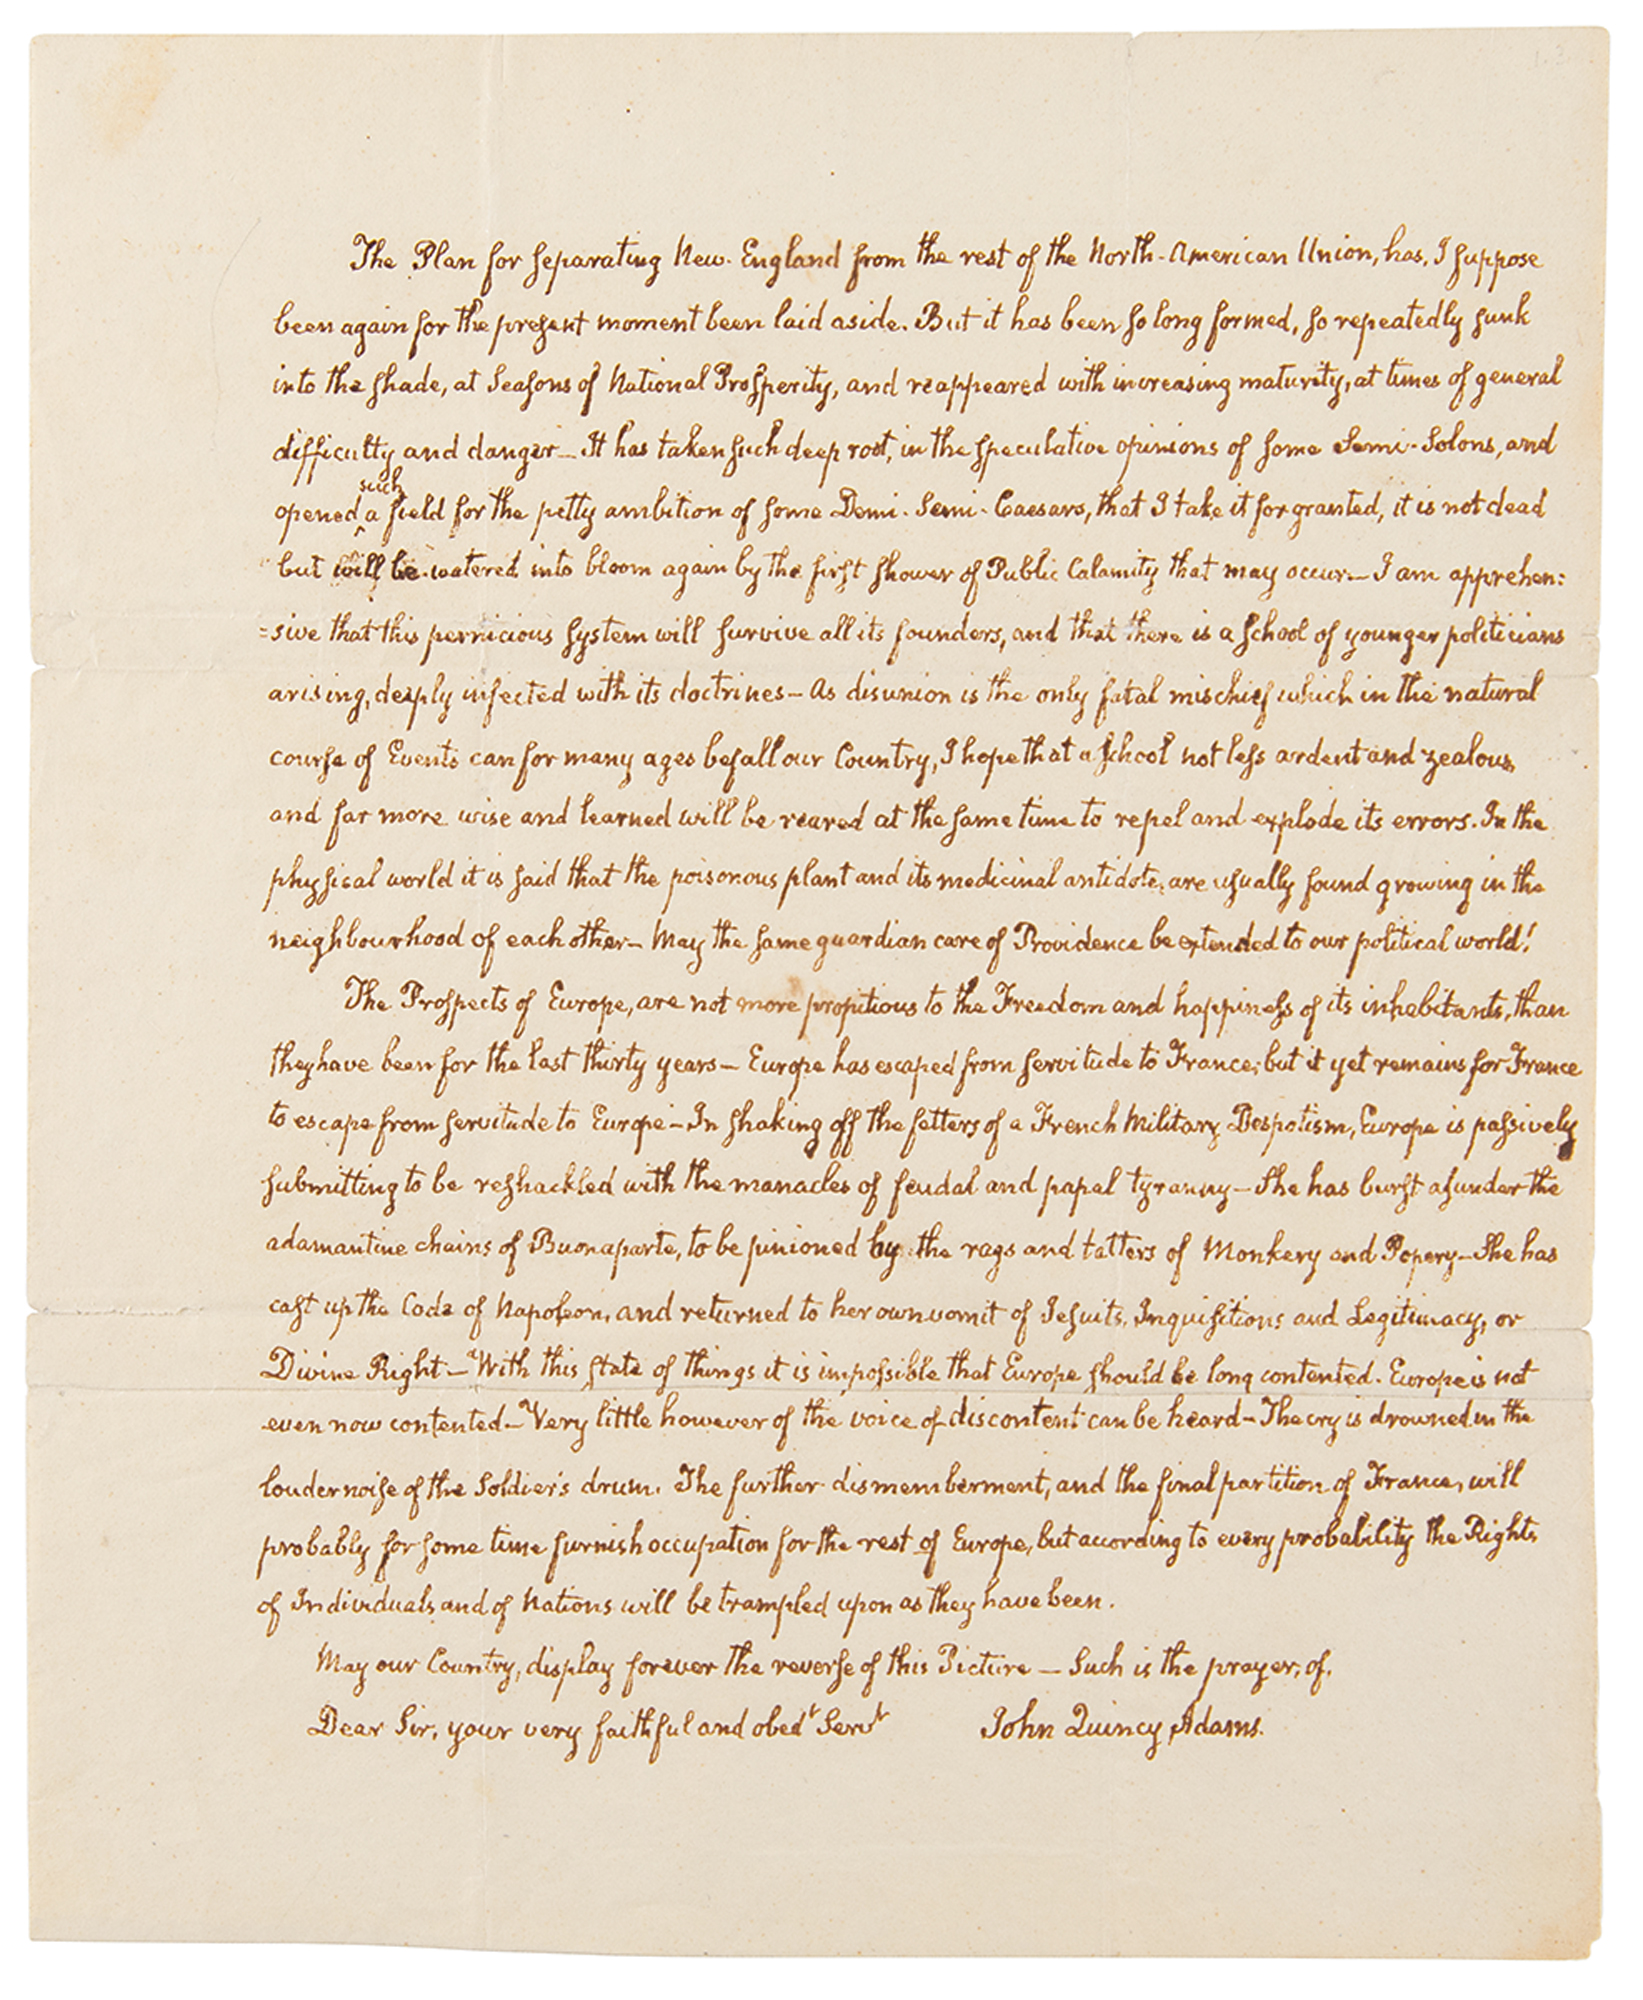 The Plan for separating New-England from the rest of the North-American Union, has, I suppose
been again for the present moment been laid aside. But it has been so long formed, so repeatedly sunk
into the shade, at Seasons of National Prosperity, and reappeared with increasing maturity, at times of general
difficulty and danger—It has taken such deep root, in the speculative opinions of some Semi-Solons, and
such
opened a field for the petty ambition of some Demi-Semi-Caesars, that I take it for granted, it is not dead
but will be watered into bloom again by the first shower of Public Calamity that may occur—I am apprehen:
=sive that this pernicious system will survive all its founders, and that there is a school of younger politicians
arising, deeply infected with its doctrines—As disunion is the only fatal mischief which in the natural
course of Events can for many ages befall our Country, I hope that a School not less ardent and zealous,
and far more wise and learned will be reared at the same time to repel and explode its errors. In the
physical world it is said that the poisonous plant and its medicinal antidote, are usually found growing in the
neighbourhood of each other—May the same guardian care of Providence be extended to our political world!
The Prospects of Europe, are not more propitious to the Freedom and happiness of its inhabitants, than
they have been for the last thirty years—Europe has escaped from servitude to France; but it yet remains for France
to escape from servitude to Europe—In shaking off the fetters of a French Military Despotism, Europe is passively
submitting to be reshackled with the manacles of feudal and papal tyranny—She has burst asunder the
adamantine chains of Buonaparte, to be pinioned by the rags and tatters of Monkery and Popery—She has
cast up the Code of Napoleon, and returned to her own vomit of Jesuits, Inquisitions and Legitimacy, or
Divine Right—With this state of things it is impossible that Europe should be long contented. Europe is not
even now contented—Very little however of the voice of discontent can be heard—The cry is drowned in the
louder noise of the Soldier's drum. The further dismemberment, and the final partition of France, will
probably for some time furnish occupation for the rest of Europe, but according to every probability the Rights
of Individuals and of Nations will be trampled upon as they have been.
May our Country, display forever the reverse of this Picture—Such is the prayer, of,
Dear Sir, your very faithful and obedt Servt John Quincy Adams.